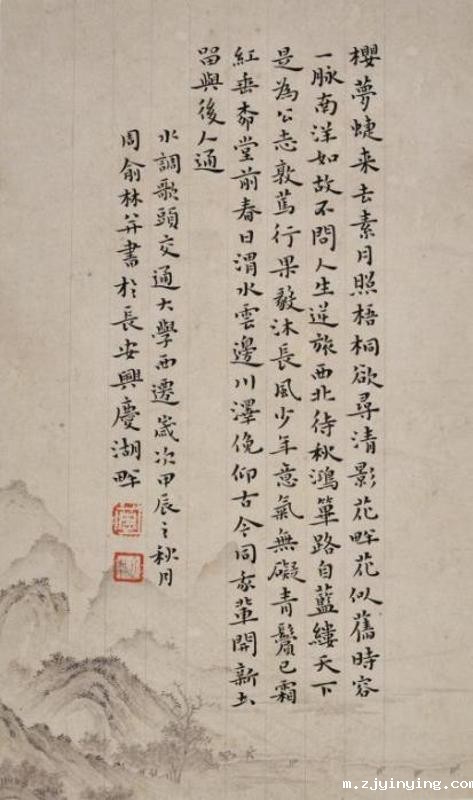 櫻夢蜨来去素月照梧桐欲尋清影花畔花似舊時容
一脉南洋如故不問人生逆旅西北待秋鴻篳路自藍縷天下
是為公志敦篤行果毅沐長風少年意氣無礙青鬢已霜
紅垂堂前春日渭水雲邊川澤俛仰古今同我輩開新土
畱與後人通
水調歌頭交通大學西遷歲次甲辰之秋月
周俞林并書於長安興慶湖畔
m.zjyinying.com